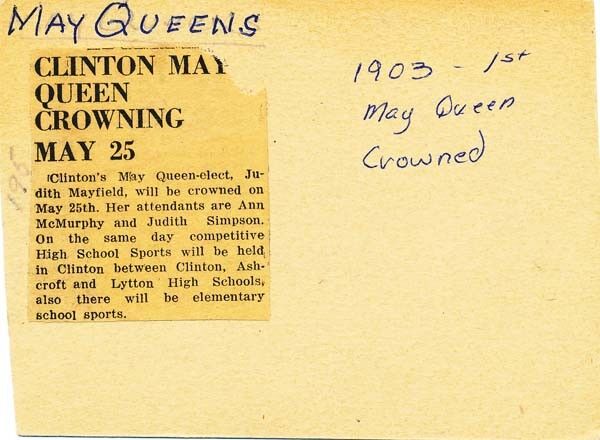 MAY QUEENS
CLINTON MAY
QUEEN
CROWNING
MAY 25
Clinton's May Queen-elect, Ju-
dith Mayfield, will be crowned on
May 25th. Her attendants are Ann
McMurphy and Judith Simpson.
On the same day competitive
High School Sports will be held
in Clinton between Clinton, Ash-
croft and Lytton High Schools,
also there will be elementary
school sports.
1903 - 1st
May Queen
Crowned